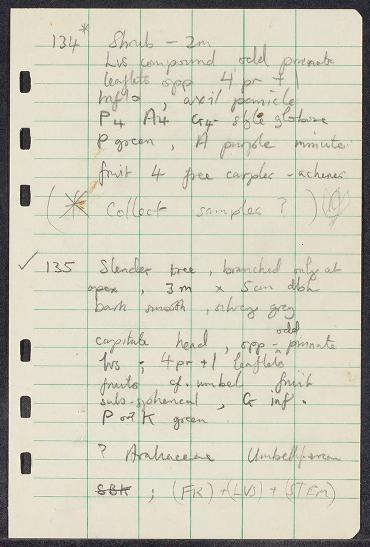 134* Shrub - 2m
Lvs compound odd pinnate
leaflets opp 4 pr + 1
Inflo, axil panicle
P4 A4 G4 - style globose
P green, A purple minute
fruit 4 free carples - achenes
(* Collect samples ?)
✓ 135 Slender tree, branched only at
apex, 3m x 5cm dbh
bark smooth, silvery grey
capitate head, opp - odd pinnate
lvs ; 4pr + 1 leaflets
fruits of umbel fruit
sub-spherical, G inf.
P or K green
? Araliaceae Umbelliferae
SBK ; (FR) + (LVS) + (STEM)